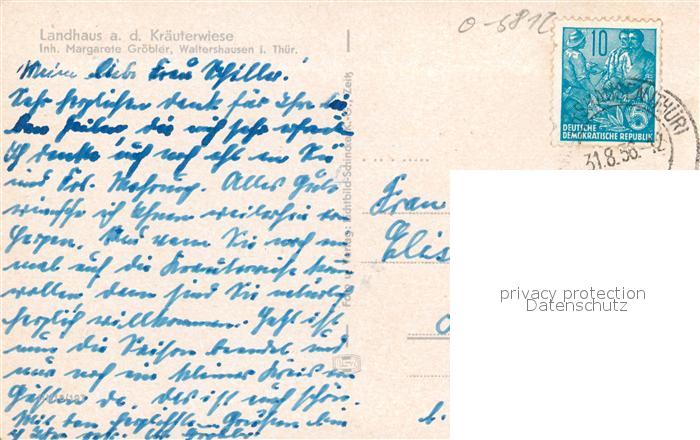 Landhaus a. d. Kräuterwiese
Inh. Margarete Gröbler, Waltershausen i. Thür.
o-5812
10
DEUTSCHE
DEMOKRATISCHE REPUBLIK
5
31.8.56.-12
Meine liebe Frau Schiller!
Sehr herzlichen Dank für Ihre lie
ben Zeilen, die mich sehr erfreut
Ich denke auch noch oft an Sie
und Frl. Alles Gute
wünsche ich Ihnen weiterhin von
Herzen. Und wenn Sie noch ein
mal auf die Kräuterwiese kom
wollen dann sind Sie natürlich
herzlich willkommen. Jetzt ist
nun die Saison beendet und
nur noch ein kleiner Kreis von
Gästen da, das ist auch schön.
Mit den herzlichsten Grüßen bin
ich Ihre Gröbler
Foto u. Verlag: Lichtbild-Schincke, Zeitz
Frau
Elis
privacy protection
Datenschutz